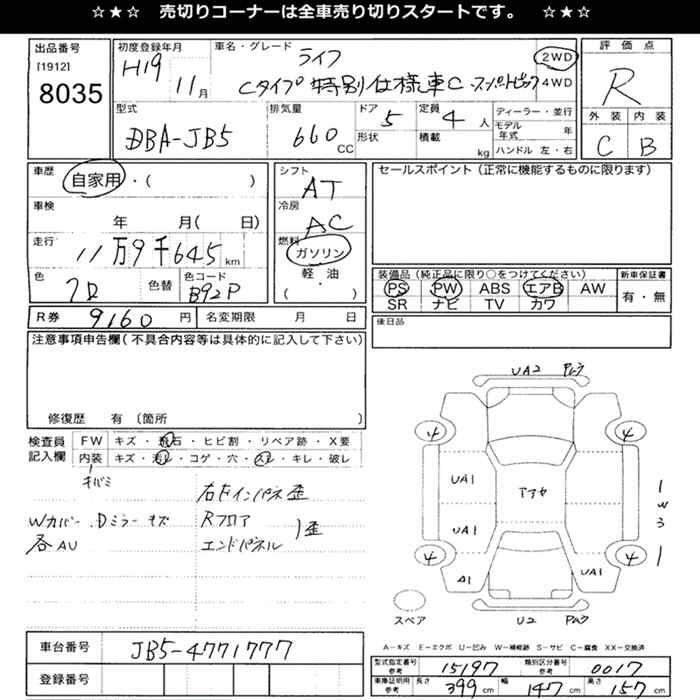 ☆★☆ 売切りコーナーは全車売り切りスタートです。 ☆★☆
出品番号
[1912]
8035
初度登録年月
H19
11月
車名・グレード
ライフ
Cタイプ 特別仕様車C・スーパートピック
2WD
4WD
評価点
R
外装 内装
C B
型式
DBA-JB5
排気量
660 CC
ドア
5
形状
定員
4 人
積載
kg
ディーラー・並行
モデル年式 年
ハンドル 左・右
車歴
自家用・( )
車検
年 月( 日)
走行
11万9千645 km
色
色替
色コード
B92P
シフト
AT
冷房
AC
燃料
ガソリン
軽・油
( )
セールスポイント(正常に機能するものに限ります)
装備品(純正品に限り○をつけてください)
PS PW ABS エアB AW
SR ナビ TV カワ
新車保証書
有・無
後日品
R券 9160 円
名変期限 月 日
注意事項申告欄(不具合内容等は具体的に記入して下さい)
修復歴 有 〔箇所 〕
検査員
記入欄
FW キズ・飛石・ヒビ割・リペア跡・X要
内装 キズ・汚レ・コゲ・穴・スレ・キレ・破レ
キバミ
Wカバー、Dミラーキズ
各AU
右Fインパネ歪
Rフロア
エンドパネル
歪
UA2
4
4
UA1
アアヤ
UA1
1
W3
1
4
4
A1
UA1
スペア
U2
A=キズ E=エクボ U=凹み W=補修跡 S=サビ C=腐食 XX=交換済
車台番号
JB5-4771777
登録番号
型式指定番号
参考
15197
類別区分番号
参考
0017
車庫証明用
参考
長さ 399 cm
幅 147 cm
高さ 157 cm